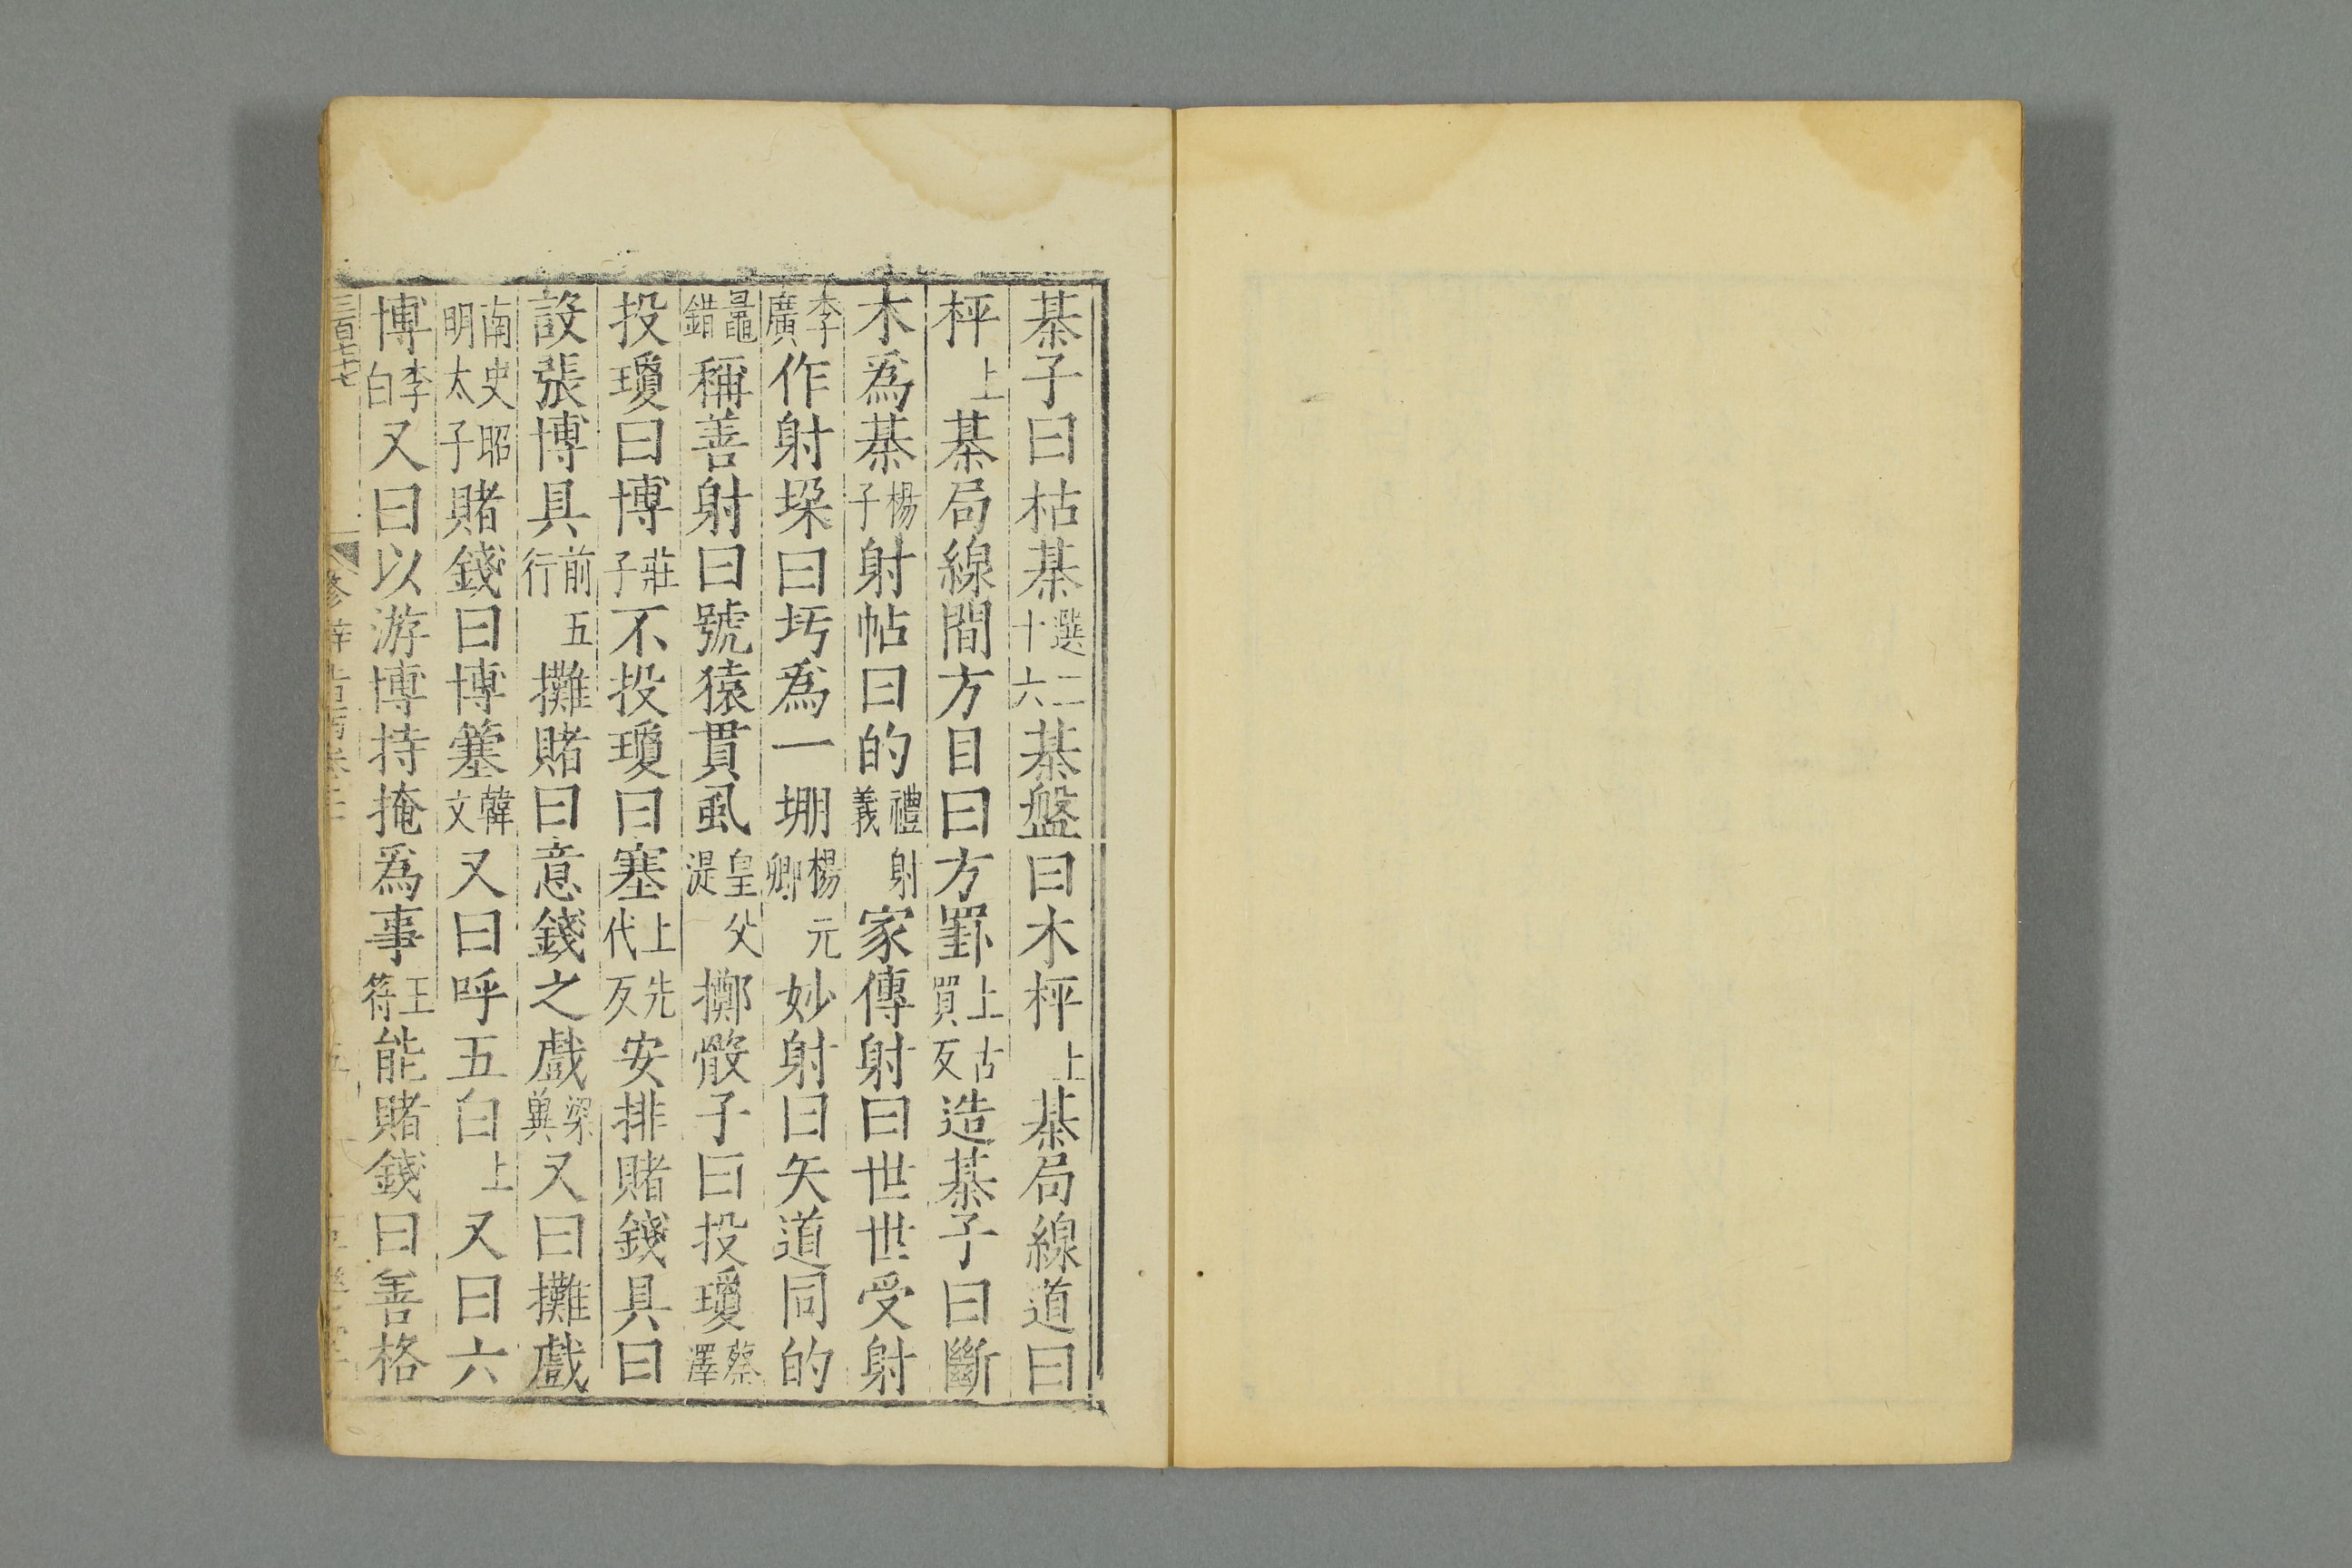 棊子曰枯棊選二十六棊盤曰木枰上棊局線道曰
枰上棊局線間方目曰方罫上古買反造棊子曰斷
木爲棊楊子射帖曰的禮射義家傳射曰世世受射
李廣作射垜曰圬爲一堋楊元卿妙射曰矢道同的
鼂錯稱善射曰號猿貫虱皇父湜擲骰子曰投瓊蔡澤
投瓊曰博莊子不投瓊曰塞上先代反安排賭錢具曰
設張博具前五行攤賭曰意錢之戲梁冀又曰攤戲
南史昭明太子賭錢曰博簺韓文又曰呼五白上又曰六
博李白又曰以游博持掩爲事王符能賭錢曰善格
三百七十七